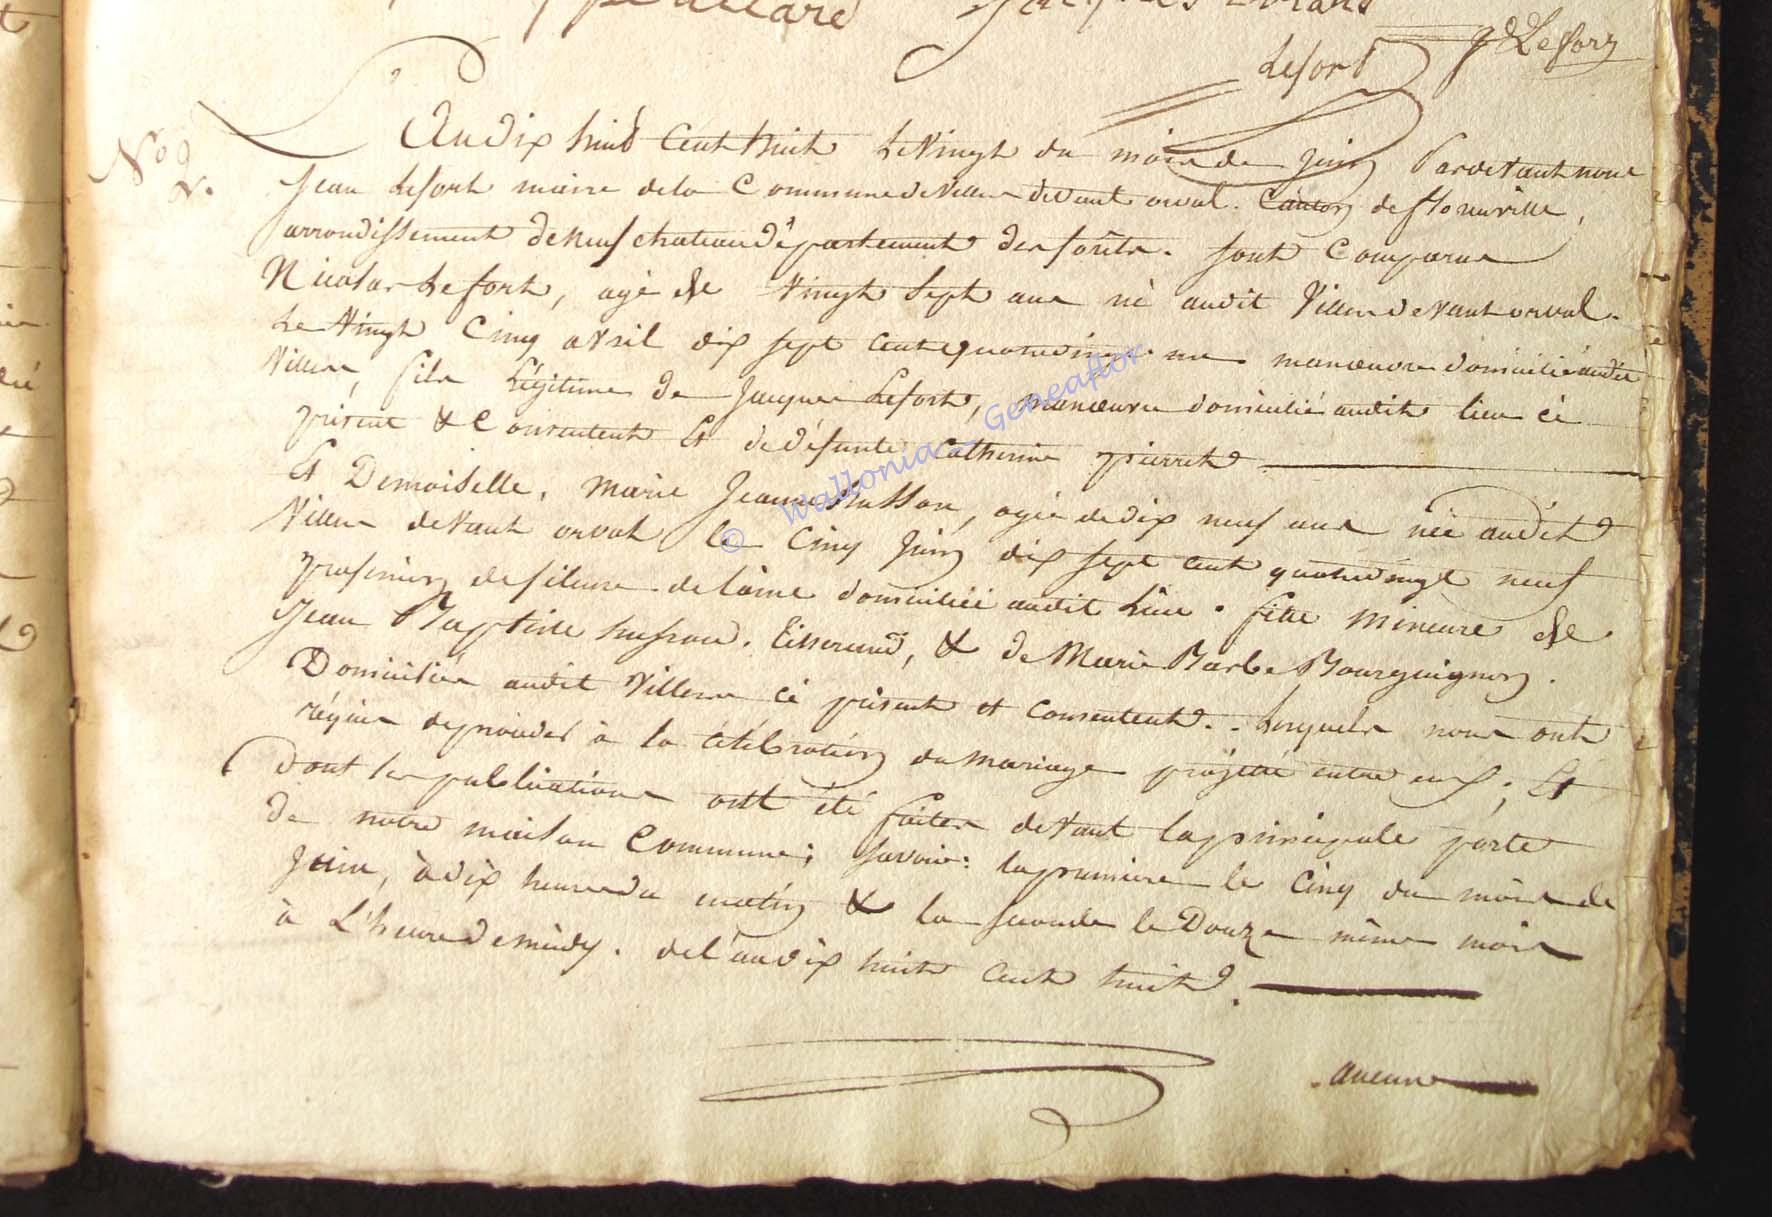 Lefort J Lefort
No 2.
An dix huit Cent huit Le Vingt du mois de Juin Pardevant nous
Jean Lefort maire de la Commune de Villers devant orval. Canton de florenville,
arrondissement de Neufchateau Département des forêts. sont Comparus
Nicolas Lefort, agé de Vingt Sept ans né audit Villers devant orval.
Le Vingt Cinq avril dix sept Cent quatrevingt un manoeuvre domicilié audit
Villers, fils Légitime de Jacques Lefort, manoeuvre domicilié audit lieu ci
présent & Consentent Et de défunte Catherine pierret
Et Demoiselle, Marie Jeanne Husson, agée de dix neuf ans née audit
Villers devant orval le Cinq Juin dix sept cent quatrevingt neuf
profession de fileuse de laine domiciliée audit lieu. fille Mineure de
Jean Baptiste husson. Tisserand, & de Marie Barbe Bourguignon.
Domiciliés audit Villers ci présent et consentent. Lesquels nous ont
réquis de procéder à la célébration du Mariage projetté entre eux; Et
dont les publications ont été faites devant la principale porte
de notre maison Commune; savoir: la premiere le Cinq du mois de
Juin, à dix heures du matin & la seconde le Douze même mois
à L'heure de midy. de l'an dix huit cent huit.
aucune
© Wallonia - Geneaflor